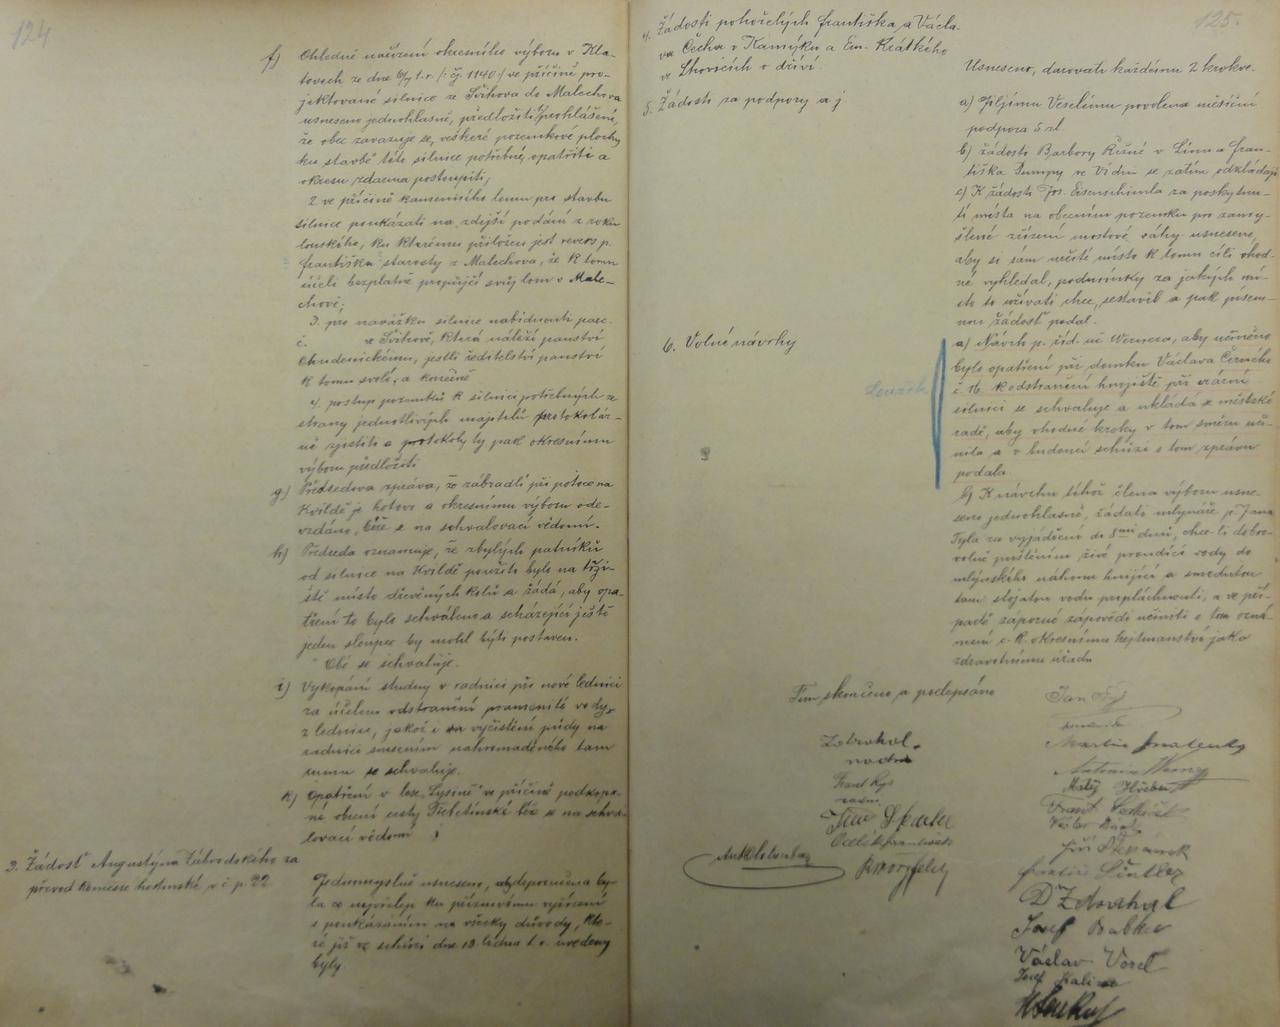 124
f) Ohledně nařízení okresního výboru v Kla-
tovech ze dne 6/7 t.r. /: čj. 1140 :/ ve příčině pro-
jektované silnice ze Svihova do Malechova
usneseno jednohlasně, předložiti 1/ prohlášení,
že obec zavazuje se, veškeré pozemkové plochy
ku stavbě této silnice potřebné, opatřiti a
okresu zdarma postoupiti;
2 ve příčině kamenného lomu pro stavbu
silnice poukázati na zdejší podání z roku
lonského, ku kterému přiložen jest revers p.
Františka starosty z Malechova, že k tomu
účeli bezplatně propůjčí svůj lom v Male-
chově;
3. pro navážku silnice nabídnouti parc.
č. ve Svihově, která náleží panství
Chudenickému, jestli ředitelství panství
k tomu svolí, a konečně
4. postup pozemků k silnici potřebných ze
strany jednotlivých majitelů protokolár-
ně zjistiti a protokoly ty pak okresnímu
výboru předložiti
g) Předsedova zpráva, že zábradlí při potoce na
Kvildě je hotovo a okresnímu výboru ode-
vzdáno, béře se na schvalovací vědomí.
h) Předseda oznamuje, že zbylých patníků
od silnice na Kvildě použito bylo na tržiš-
ště místo dřevěných kolů a žádá, aby opa-
tření to bylo schváleno a scházející ještě
jeden sloupec by mohl býti postaven.
Obé se schvaluje.
i) Vykopání studny v radnici při nové lednici
za účelem odstranění pramenité vody
z lednice, jakož i na vyčistění půdy na
radnici snesením nahromaděného tam
rumu se schvaluje.
k) Opatření v lese "Lysině" ve příčině podkopa-
né obecní cesty Třebetínské béře se na schva-
lovací vědomí
3. Žádosť Augustýna Závodského za
převod konsesse hostinské v č. p. 22
Jednomyslně usneseno, aby doporučena by-
la co nejvřeleji ku příznivému vyřízení
s poukázáním na všecky důvody, kte-
ré již ve schůzi dne 13. ledna t. r. uvedeny
byly.
125.
4. Žádosti pohořelých Františka a Václa-
va Čecha v Kamýku a Em. Krátkého
ve Lhovicích o dříví.
Usneseno, darovati každému 2 krokve.
5. Žádosti za podpory a j
a) Jiljímu Veselému povolena měsíční
podpora 5 zl.
b) žádosti Barbory Řezné v Linci a Fran-
tiška Pumpy ve Vídni se zatím odkládají
c) K žádosti Jos. Eisenschimla za poskytnu-
tí místa na obecním pozemku pro zamý-
šlené zřízení mostové váhy usneseno,
aby si sám určité místo k tomu cíli vhod-
né vyhledal, podmínky za jakých mí-
sto to užívati chce, sestavil a pak písem-
nou žádosť podal.
6. Volné návrhy
a) Návrh p. řid. uč Wernera, aby učiněno
bylo opatření při domku Václava Černého
č 16. k odstranění hnojiště při erární
silnici se schvaluje a ukládá se městské
radě, aby vhodné kroky v tom směru uči-
nila a v budoucí schůzi o tom zprávu
podala.
b) K návrhu téhož člena výboru usne-
seno jednohlasně, žádati mlynáře p. Jana
Tyla za vyjádření do 8mi dnů, chce-li dobro-
volně puštěním živé proudící vody do
mlýnského náhonu hnijící a smrdutou
tam stojatou vodu propláchnouti, a ve pří-
padě záporné odpovědi učiniti o tom ozná-
mení c. k. okresnímu hejtmanství jako
zdravotnímu úřadu
Tím skončeno a podepsáno
Frant Rys
radní
Matěj
Jiří Štěpánek
Dr Zdrahal
Josef Babka
Václav Vosel
Josef Kalina